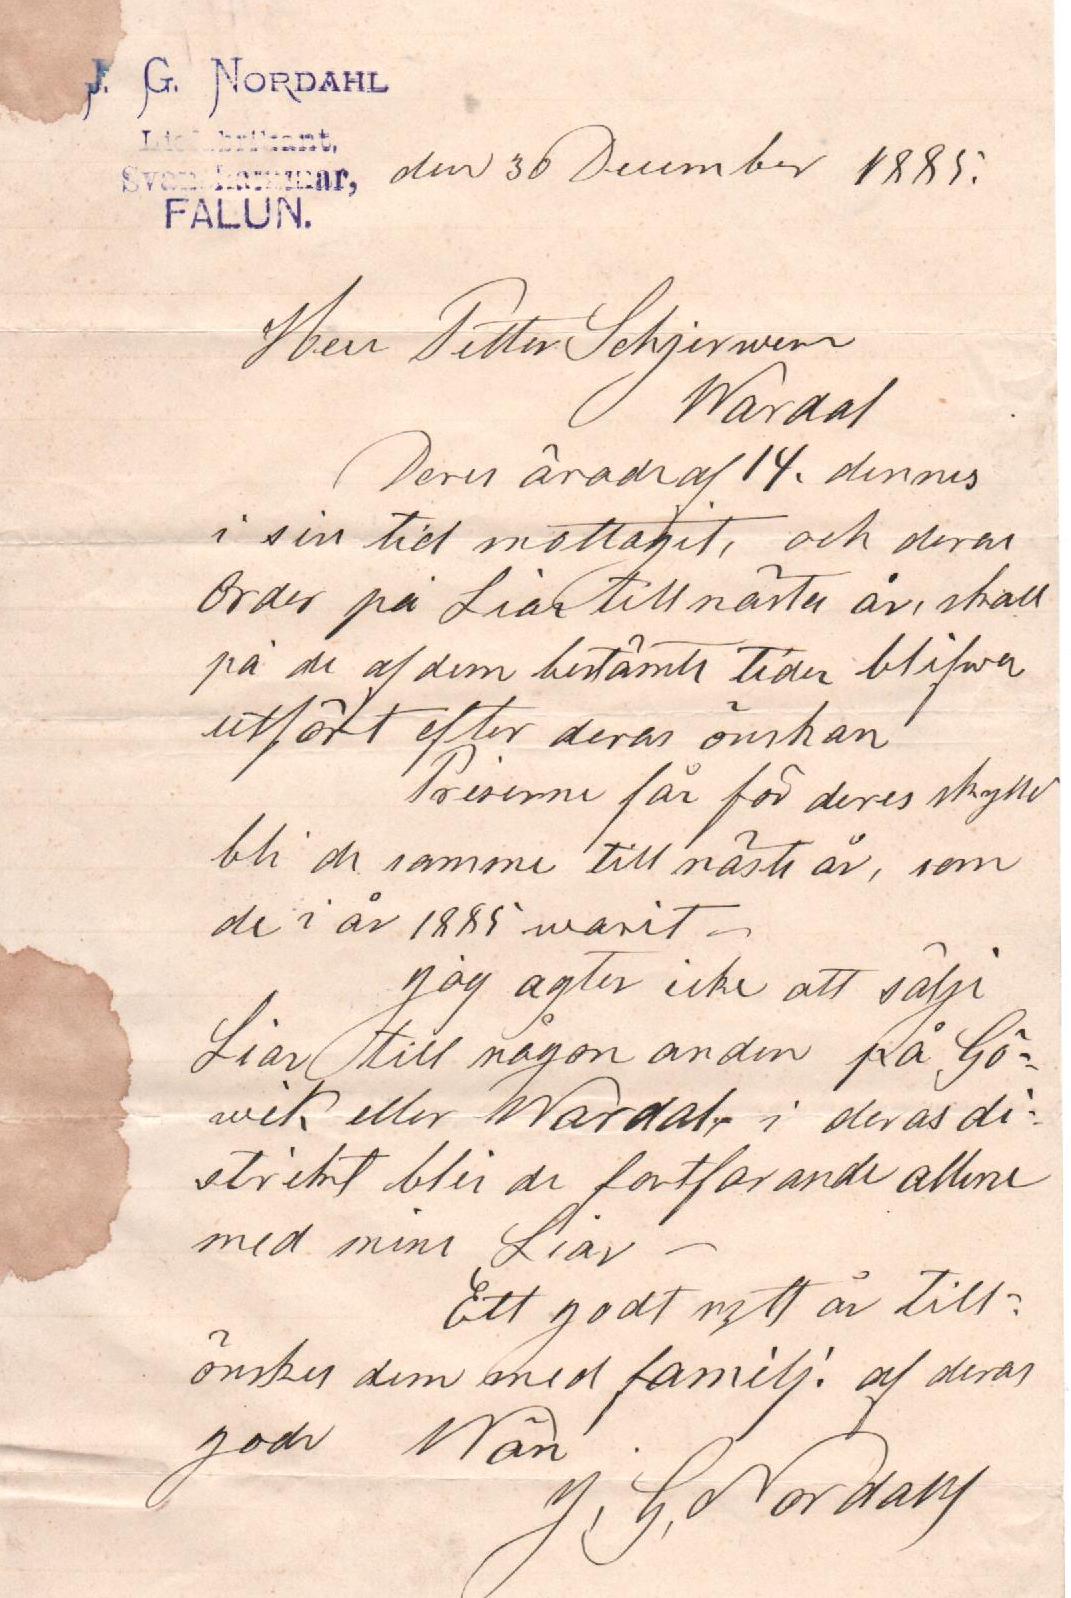 J. G. NORDAHL
FALUN.
den 30 December 1885.
Herr Petter Schjerwen
Wärdal
Deres ärade af 14. dennes
i sin tid mottagit, och deras
Order på Liar till nästa år, skall
på de af dem bestämte tider blifwa
utfört efter deras önskan
Priserne får för deres skylld
bli de samme till näste år, som
de i år 1885 warit –
jag agter icke att sälje
Liar till någon anden på Gö-
wik eller Wärdal, i deras di-
strikt blir de fortfarande allene
med mine Liar –
Ett godt nytt år till-
önskes dem med familj. af deras
gode Wän
J. G. Nordahl